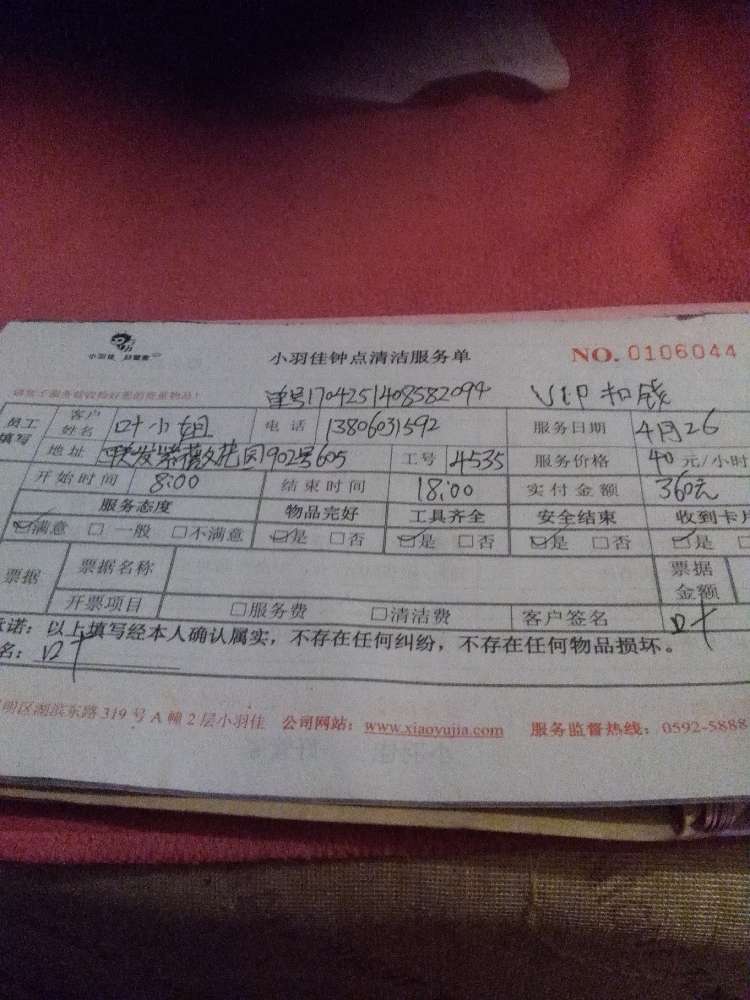 小羽佳 好管家
小羽佳钟点清洁服务单 NO. 0106044
单号1704251408582094 VIP扣钱
员工填写 客户姓名 叶小姐 电话 13806031592 服务日期 4月26
地址 联发紫薇花园902号605 工号 4535 服务价格 40 元/小时
开始时间 8:00 结束时间 18:00 实付金额 360元
服务态度 物品完好 工具齐全 安全结束 收到卡片
☑满意 □一般 □不满意 ☑是 □否 ☑是 □否 ☑是 □否 ☑是 □
票据 票据名称 票据金额
开票项目 □服务费 □清洁费 客户签名 叶
诺：以上填写经本人确认属实，不存在任何纠纷，不存在任何物品损坏。
名：叶
明区湖滨东路 319 号 A 幢 2 层小羽佳 公司网站：www.xiaoyujia.com 服务监督热线：0592-5888